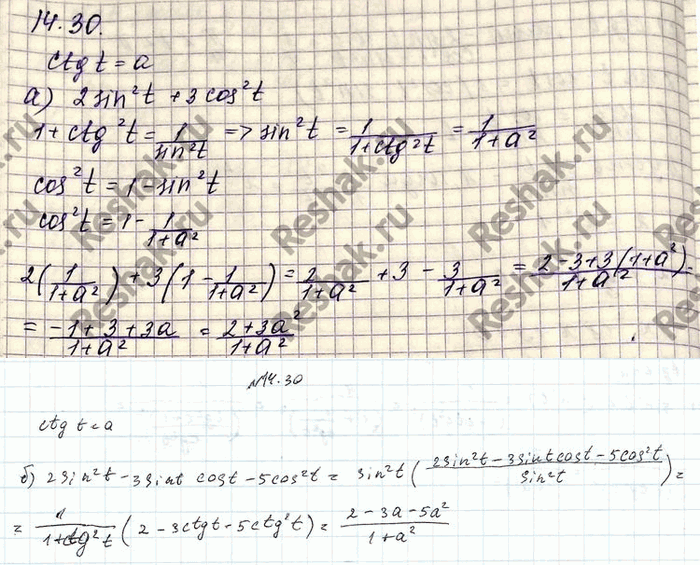 14.30.
ctg t = a
а) 2 sin²t + 3 cos²t
1 + ctg²t = 1/sin²t => sin²t = 1/(1+ctg²t) = 1/(1+a²)
cos²t = 1 - sin²t
cos²t = 1 - 1/(1+a²)
2(1/(1+a²)) + 3(1 - 1/(1+a²)) = 2/(1+a²) + 3 - 3/(1+a²) = (2-3+3(1+a²))/(1+a²) =
= (-1+3+3a)/(1+a²) = (2+3a²)/(1+a²)
№14.30
ctg t = a
б) 2sin²t - 3sint cost - 5cos²t = sin²t((2sin²t - 3sint cost - 5cos²t)/sin²t) =
= 1/(1+ctg²t) (2 - 3ctgt - 5ctg²t) = (2 - 3a - 5a²)/(1+a²)
Reshak.ru